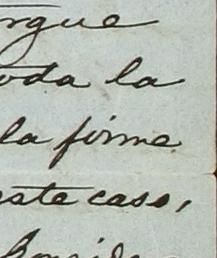 orgue
oda la
la firme
este caso,